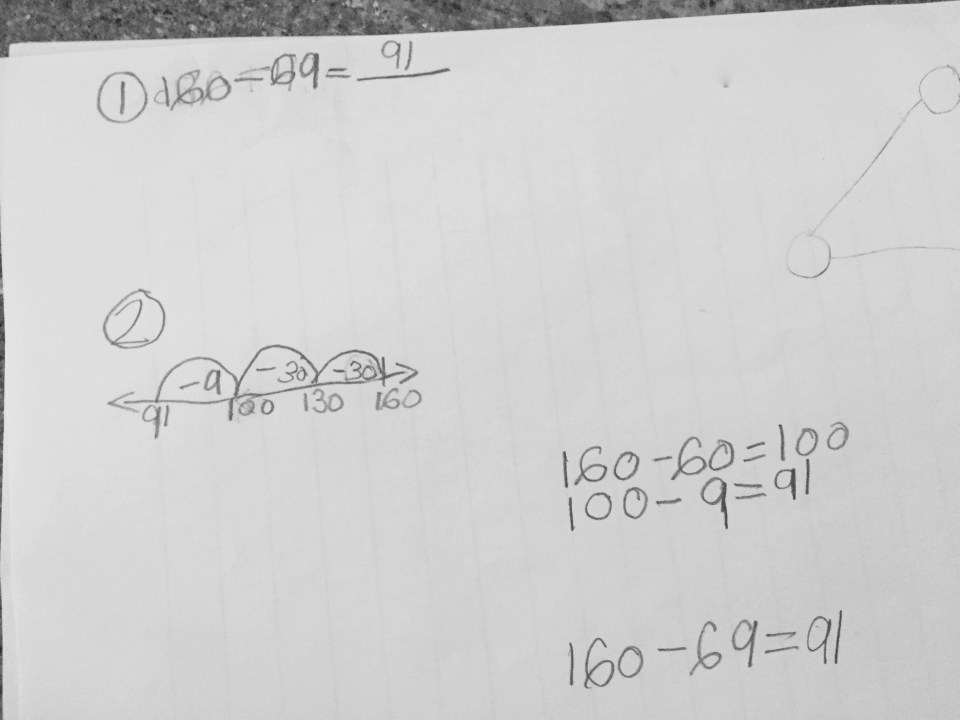 ① 160 - 69 = 91
②
-9 -30 -30
91 100 130 160
160 - 60 = 100
100 - 9 = 91
160 - 69 = 91